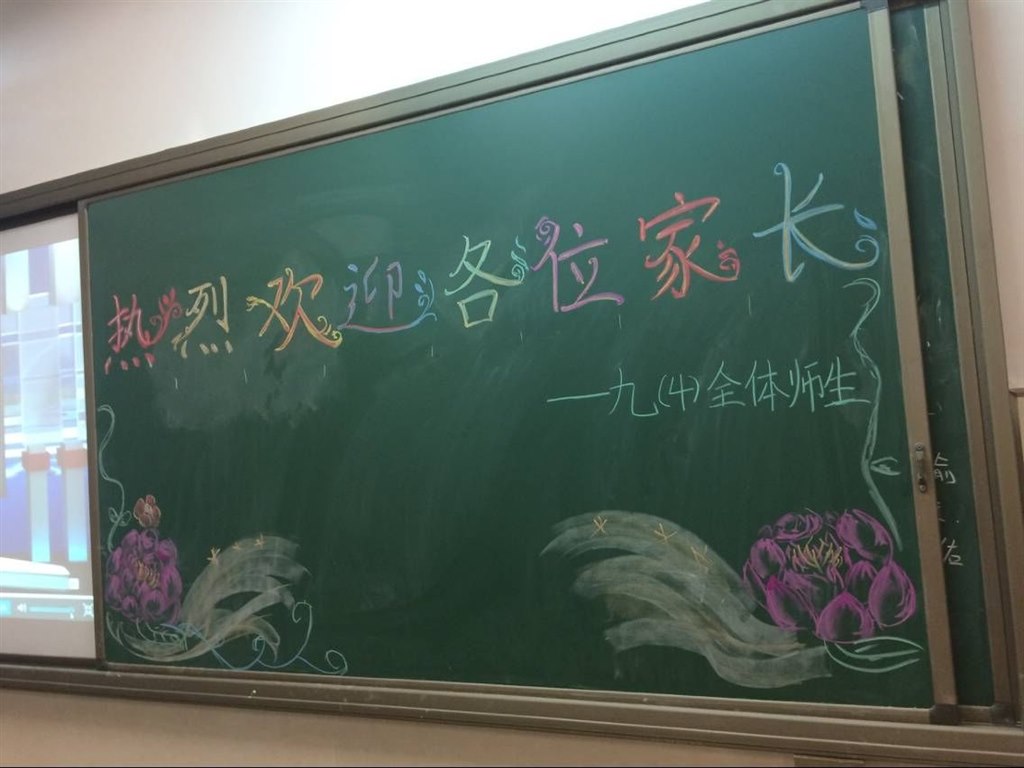 热烈欢迎各位家长
—九(4)全体师生